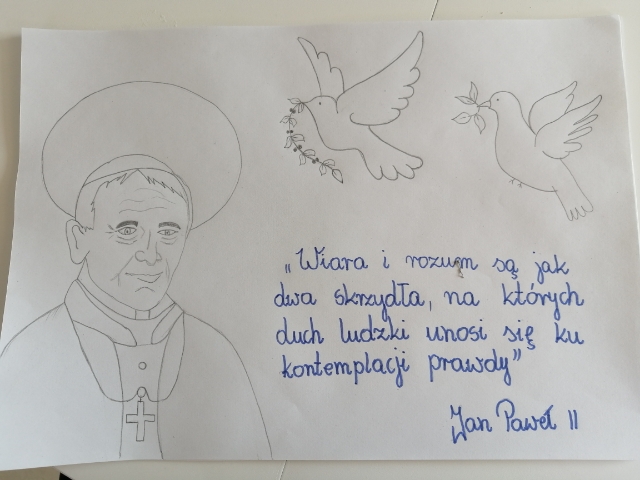 „Wiara i rozum są jak
dwa skrzydła, na których
duch ludzki unosi się ku
kontemplacji prawdy”
Jan Paweł II